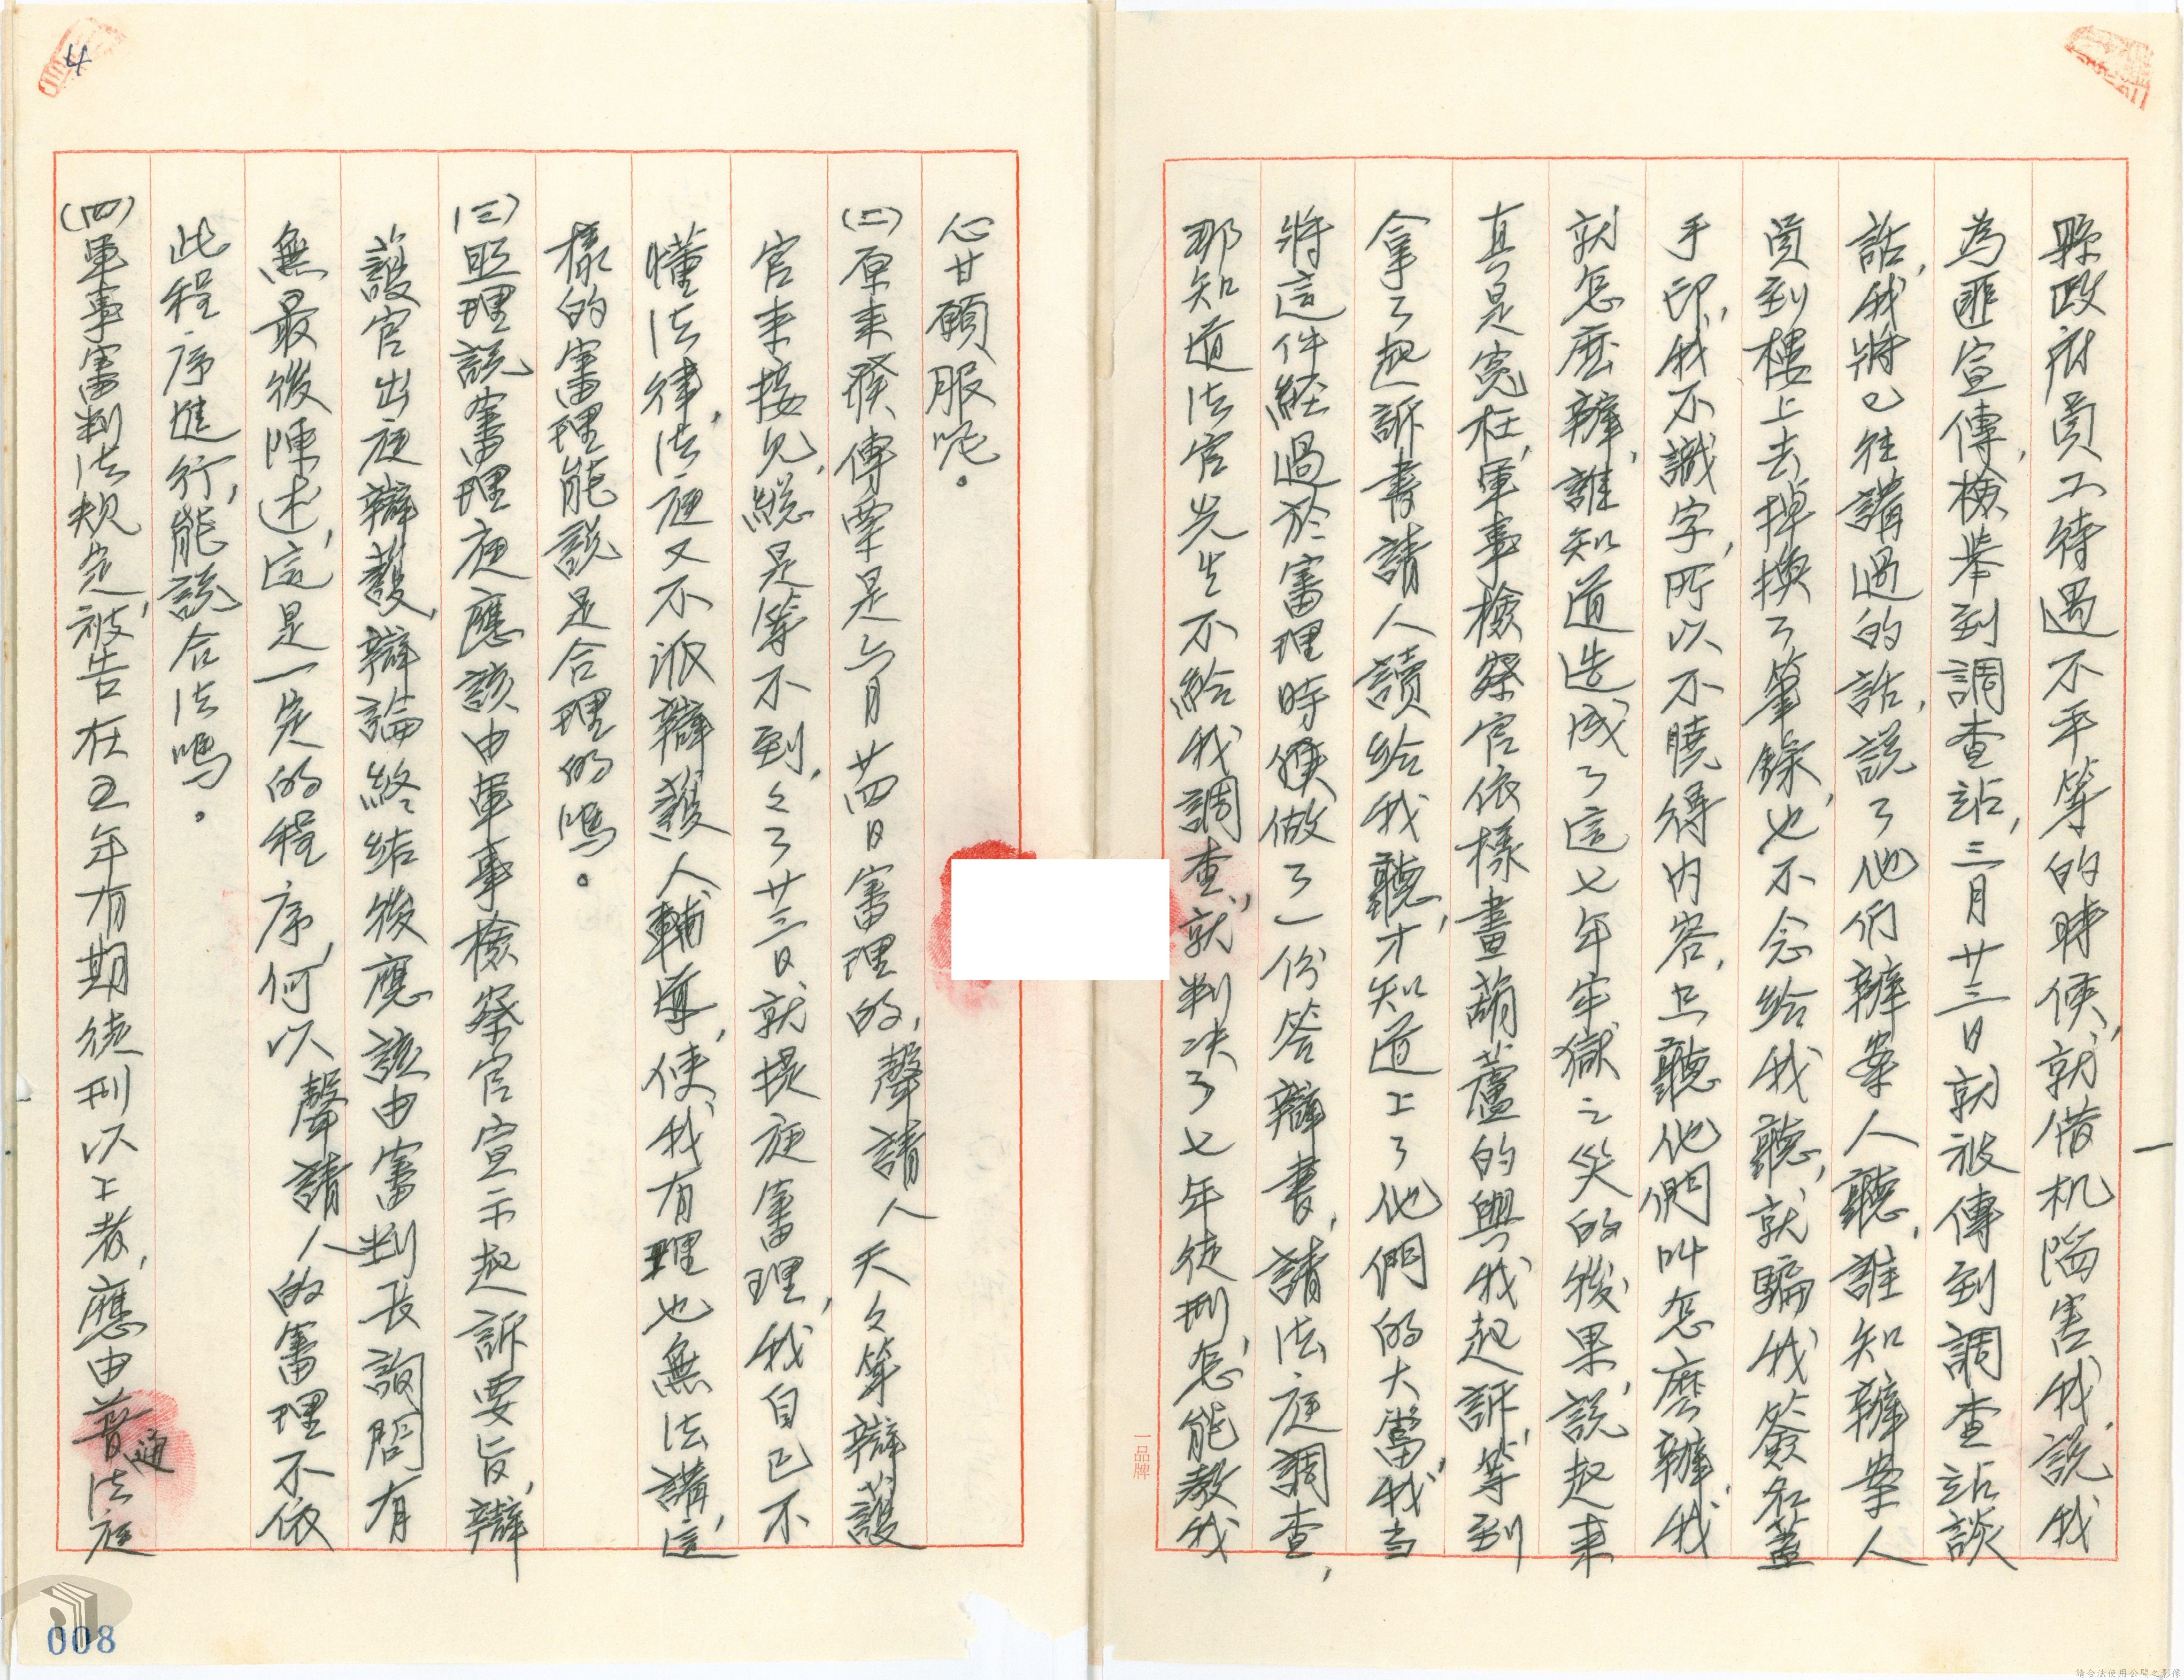 縣政府員工待遇不平等的時候,就借机陷害我,說我
為匪宣傳,檢舉到調查站,三月廿三日就被傳到調查站談
話,我將已往講過的話,説了他們辦案人聽,誰知辦案人
員到樓上去掉換了筆錄,也不念給我聽,就騙我簽名蓋
手印,我不識字,所以不曉得內容,只聽他們叫怎麽辦,我
就怎麽辦,誰知道造成了這七年牢獄之災的後果,說起來
真是寃枉,軍事檢察官依樣畫葫蘆的與我起訴,等到
拿了起訴書請人讀給我聽,才知道上了他們的大當,我当
將這件経過於審理時候做了一份答辯書,請法庭調查,
那知道法官先生不給我調查,就判决了七年徒刑,怎能教我
一品牌
心甘願服呢。
(二)原來發傳票是六月廿四日審理的,聲請人天々等辯護
官來接見,総是等不到,々了廿三日就提庭審理,我自已不
懂法律,法庭又不派辯護人輔導,使我有理也無法講,這
樣的審理能說是合理的嗎。
(三)照理說審理庭應該由軍事檢察官宣示起訴要旨,辯
護官出庭辯護,辯論終結後應該由審判長詢問有
無最後陳述,這是一定的程序,何以聲請人的審理不依
此程序進行,能說合法嗎。
(四)軍事審判法規定,被告在五年有期徒刑以上者,應由普通法庭
4
008
請合法使用公開之影像